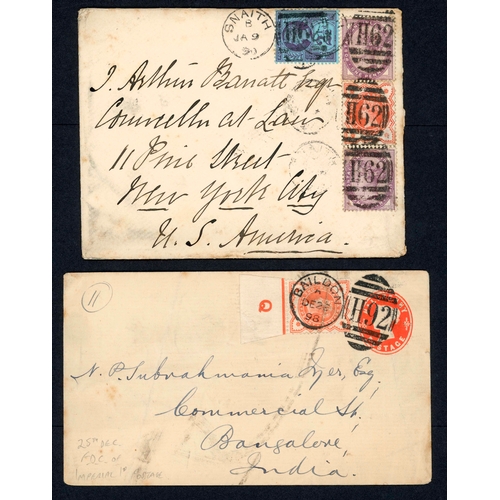 SNAITH
B
JA 9
90
H62
H62
H62
J. Arthur Barratt Esqr
Councellor at Law
11 Pine Street
New York City
U.S. America.
11
Q
BAILDON
A
DE 25
98
H92
POSTAGE
N. P. Subrahmania Iyer, Esq.
Commercial St,
Bangalore,
India.
25th DEC.
F.D.C. of
'IMPERIAL 1d' POSTAGE